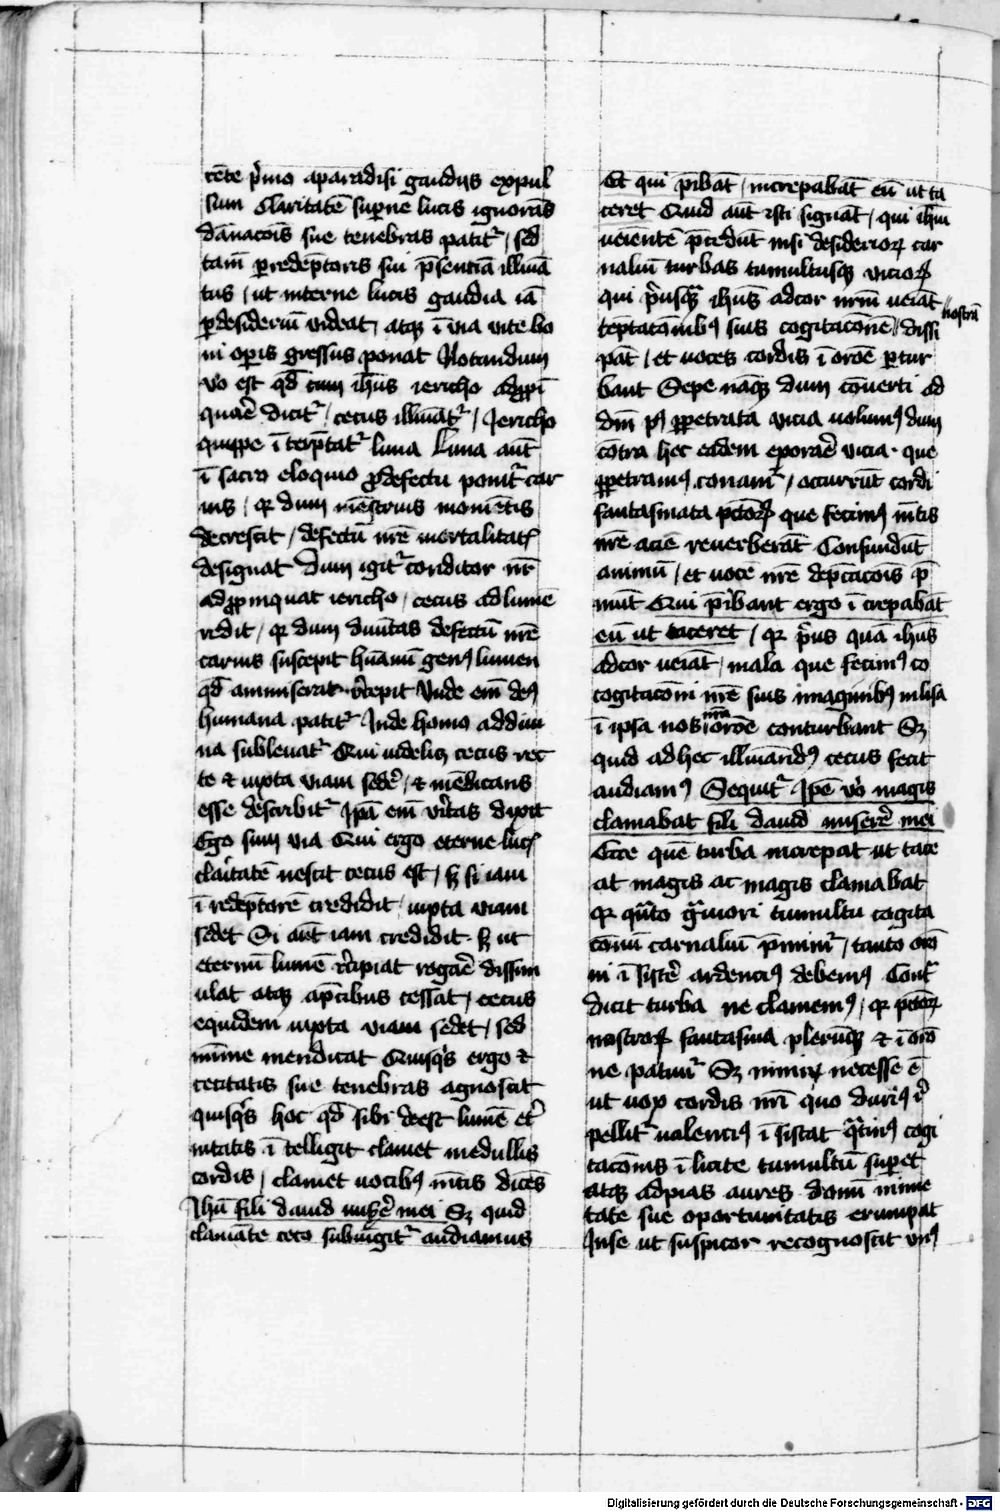 rēte p̄mo aparadisi gaudijs expul
sum Claritatē supne lucis ignorās
dānacōis sue tenebras patitᷣ / sed
tam̄ p redēptoris sui p̄sentiā illuīa
tus / ut interne lucis gaudia iā
pdesideriū videat / atqꝫ ī via vite bo
ni opis gressus ponat Notandum
vo est qd̄ cum ih̄us iericho adp̱pī
quaē dicitᷣ / cecus illūiatᷣ / Jericho
quippe ī terp̄tatᷣ luna Luna aūt
ī sacro eloquio ꝓdefectu ponitᷣ car
nis / qꝛ dum mēstruis momētis
decrescit / defectū nr̄e mortalitatꝭ
designat Dum igitᷣ conditor nr̄
adꝓpinquat iericho / cecus ad lumē
redit / qꝛ dum diuītas defectū nr̄e
carnis suscepit hūanū genꝰ lumen
qd̄ amiserat recepit Vnde em̄ deꝰ
humana patitᷣ Inde homo addiui
na subleuatᷣ Qui videlicꝫ cecus rec
te ⁊ iuxta viam sedē / ⁊ mēdicans
esse describitᷣ Ip̄a em̄ vītas dixit
Ego sum via Qui ergo eterne lucꝭ
claītatē nescit cecus est / sꝫ si iam
ī redēptorē credidit / iuxta viam
sedet Si aūt iam credidit · sꝫ ut
eternū lumē recipiat rogaē dissim
ulat atqꝫ ap̄cibus cessat / cecus
equidem iuxta viam sedet / sed
mīme mendicat Quisqꝭs ergo ⁊
cecitatis sue tenebras agnoscit
quisqꝭs hoc qd̄ sibi deest lumē et̄
nitatis ī telligit clamet medullis
cordis / clamet vocibꝰ mētis dicēs
Jhū fili dauid misere mei Sꝫ quid
clamāte ceco subiūgitᷣ audiamus
Et qui p̄ibāt / increpabāt eū ut ta
ceret Quid aūt isti signāt / qui ih̄m
veientē p̄cedūt nisi desiderioꝝ car
naliū turbas tumultusqꝫ vicioꝝ
qui p̄usqꝫ ih̄us adcor nrm̄ veiāt
tēptatōnibꝰ suis cogitacōnē / dissi
nostrā
pāt / et voces cordis ī orōe ptur
bant Sepe nāqꝫ dum cōuerti ad
dm̄ pꝰ ppetrata vicia volumꝰ dum
cōtra hec eadem exoraē vicia · que
ppetramꝰ conamᷣ / occurrūt cordi
fantasmata pctōꝝ que fecimꝰ mētis
nr̄e aciē reuerberāt Confundūt
animū / et vocē nr̄e dep̄cacōis p̄
mūt Qui p̄ibant ergo ī crepabāt
eū ut taceret / qꝛ p̄us qua ihūs
adcor veiāt / mala que fecimꝰ co
cogitacōni nr̄e suis imaginibꝰ inlisa
ī ipsa nos nr̄a orōe conturbant Sꝫ
quid ad hec illūiandꝰ cecus fecit
audiamꝰ Sequitᷣ Ip̄e vo magis
clamabat fili dauid miserē mei
Ecce quē turba increpat ut tace
at magis ac magis clamabat
qꝛ quāto gᷓuiori tumultu cogita
conū carnaliū p̄mimᷣ / tanto orō
ni ī sistē ardenciꝰ debemꝰ Contᷓ
dicit turba ne clamemꝰ / qꝛ pctōꝝ
nostroꝝ fantasma plerūqꝫ ⁊ ī orō
ne patimᷣ Sꝫ nimiꝝ necesse ē
ut vox cordis nr̄i quo duriꝰ re
pellitᷣ valenciꝰ ī sistat qᷓtinꝰ cogi
tacōnis ī licite tumultū supet
atqꝫ adpias aures domī nimie
tate sue oportunitatis erumpat
Inse ut suspicor recognoscit vnꝰ
Digitalisierung gefördert durch die Deutsche Forschungsgemeinschaft - DFG